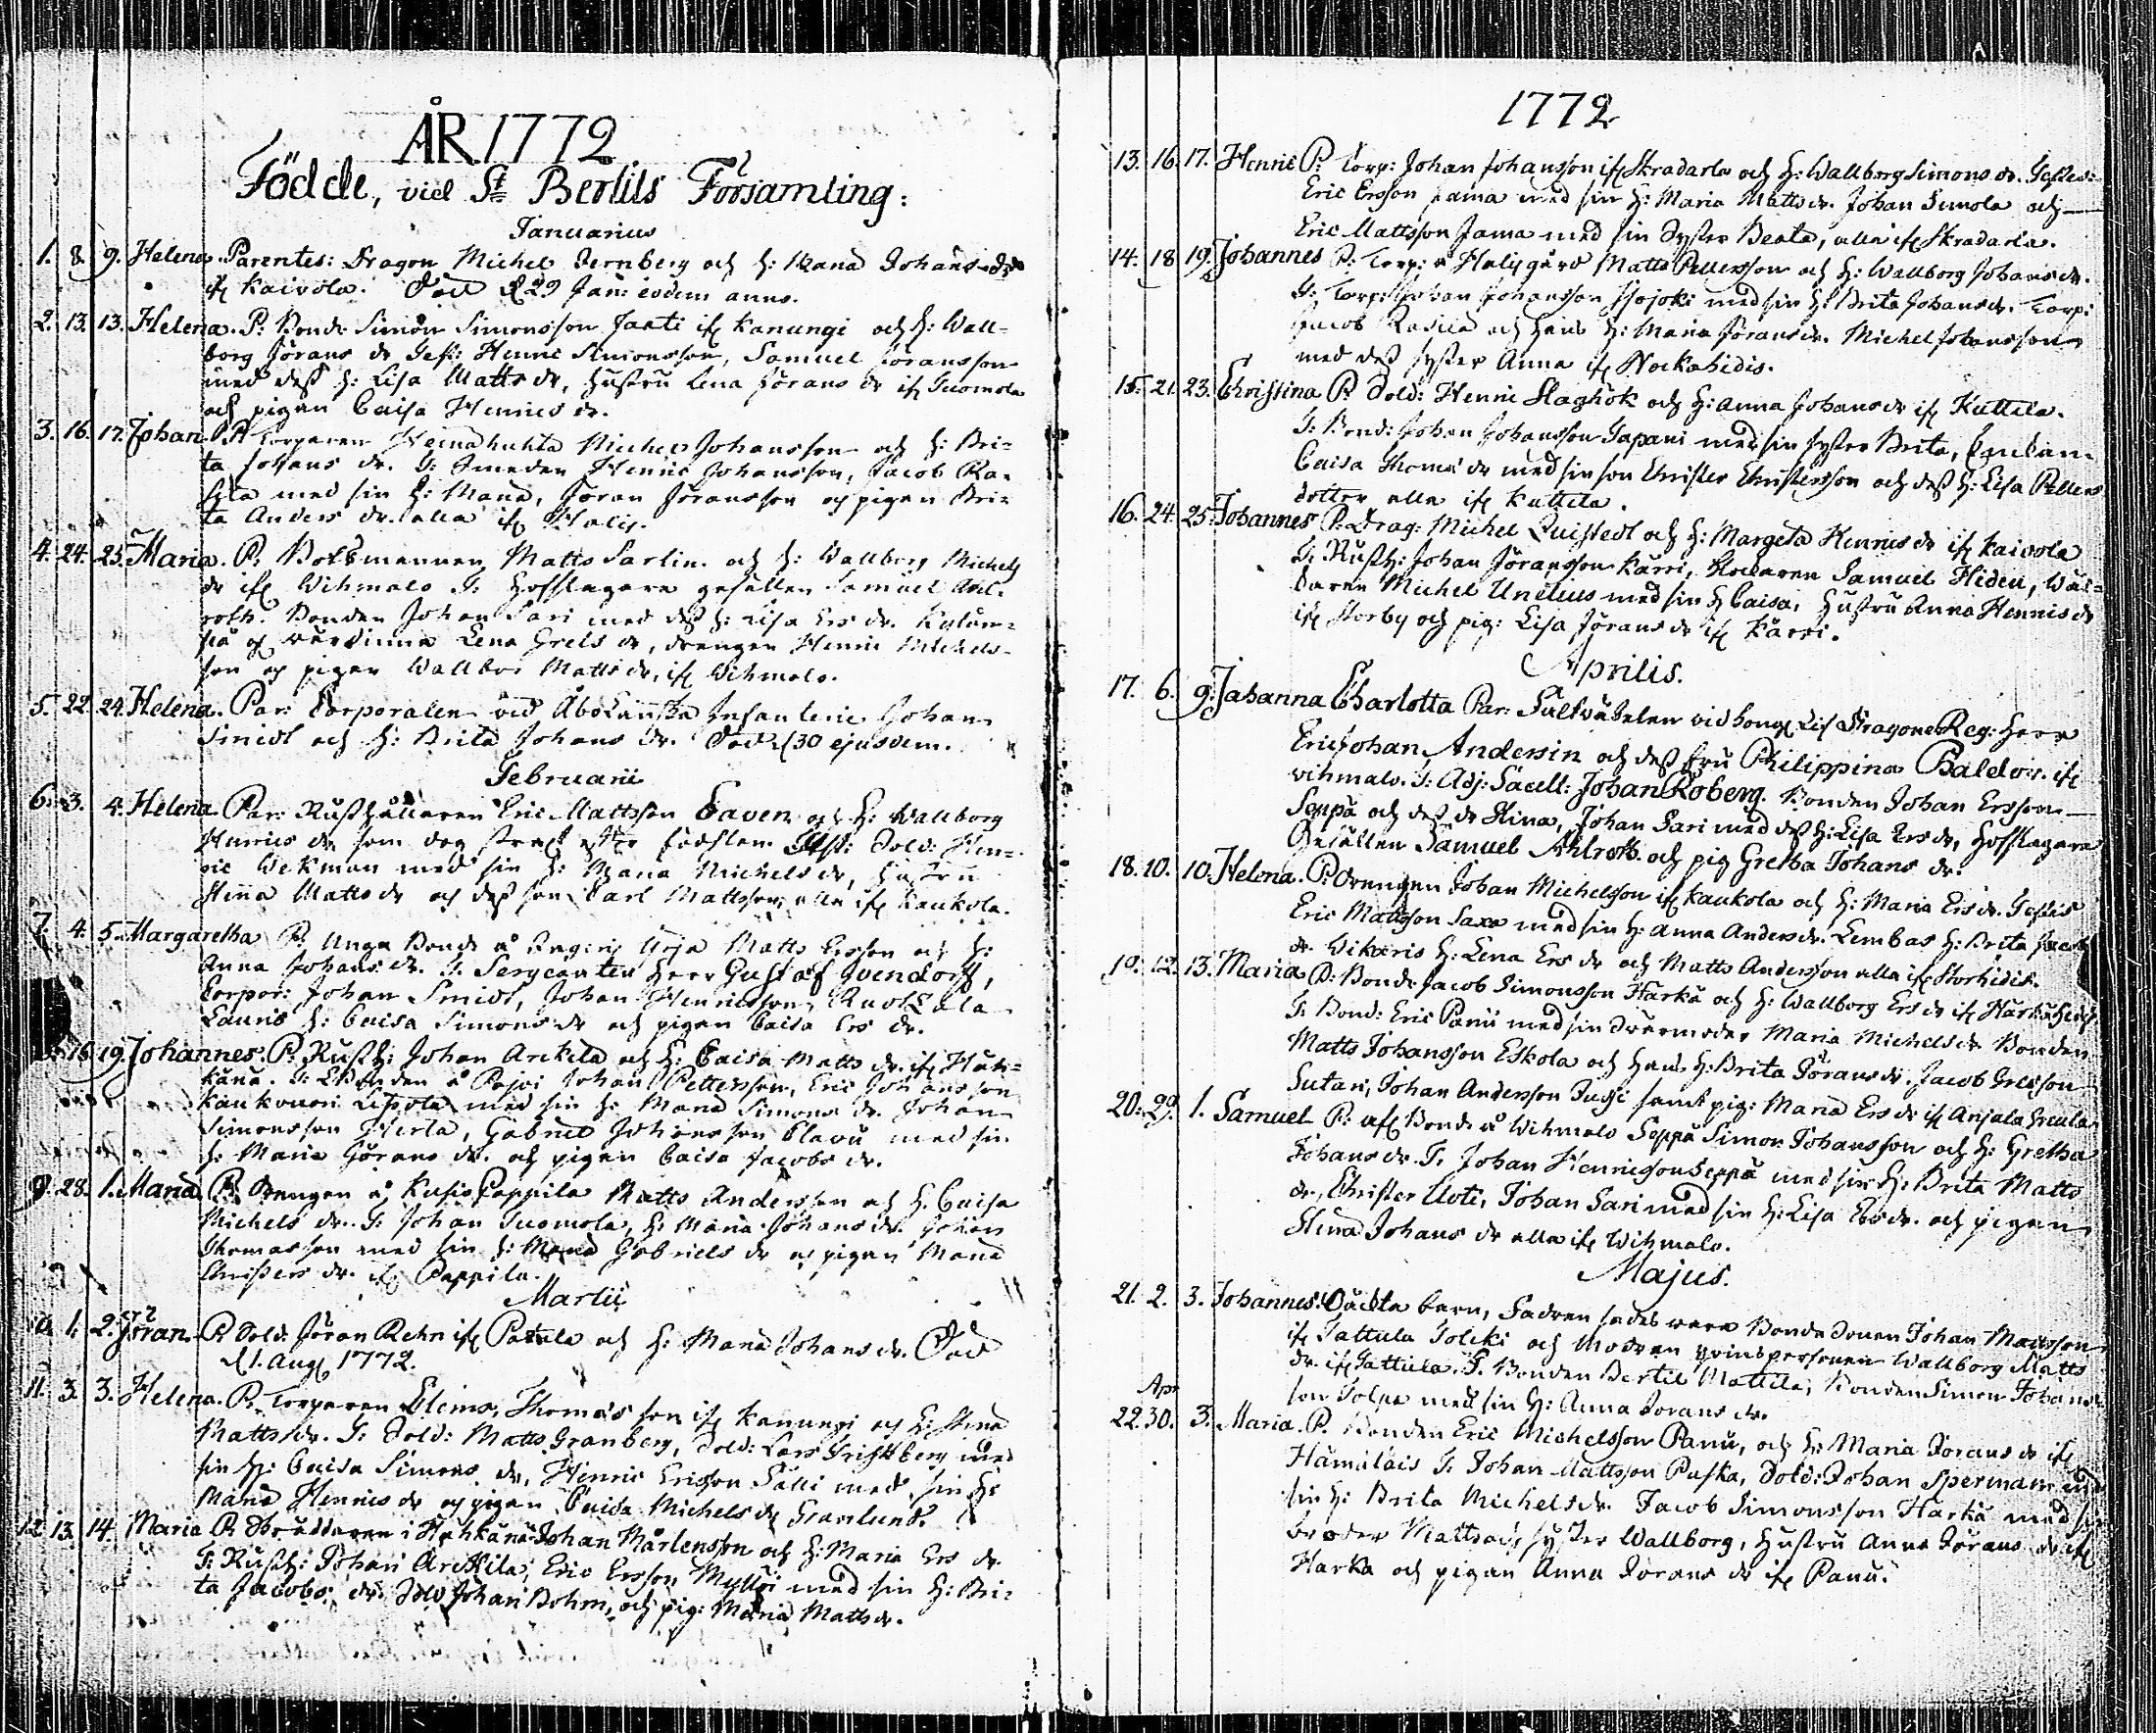 ÅR 1772
Födde, vid St Bertils Församling:
Januarius
1. 8. 9. Helena. Parentes: Dragon Michel Jernberg och H: Maria Johans dr
if Kaivola. Död d 29 Jan: eodem anno.
2. 13. 13. Helena. P: Bond: Simon Simonsson Jaati if Kanungi och H: Wall-
borg Jörans dr Test: Henric Simonsson, Samuel Jöransson
med dess H: Lisa Matts dr, hustru Lena Jörans dr if Tuomola
och pigan Caisa Henrics dr.
3. 16. 17. Johan P: Torparen Heinähuhta Michel Johansson och H: Bri-
ta Johans dr. T: Smeden Henric Johansson, Jacob Ra-
sila med sin H: Maria, Jöran Jöransson och pigan Bri-
ta Anders dr. alla if Haliz.
4. 24. 25. Maria. P: Båtsmannen Matts Sarlin och H: Wallborg Michels
dr if Wihmalo T: Hofslagare gesällen Samuel Ahl-
roth. Bonden Johan Sari med dess H: Lisa Ers dr.
och värdinna Lena Grels dr, drengen Henric Michels-
son och pigan Wallbor Matts dr, if Wihmalo.
5. 22. 24. Helena. Par: Corporalen vid Åbo Länska Infanterie Johan
Smidt och H: Brita Johans dr. Död d 30 ejusdem.
Februarii
6. 3. 4. Helena Par: Rusthållaren Eric Mattsson Caven och H: Wallborg
Henrics dr som dog strax efter födslen. Test: Sold: Hen-
ric Wekman med sin H: Maria Michels dr, hustru
Stina Matts dr och dess son Carl Mattsson alla if Kaukola.
7. 4. 5. Margaretha P: Unga Bond: å Urja Matts Ersson och H:
Anna Johans dr. T: Sergeanten Herr Gustaf
Corpor: Johan Smidt, Johan Henricsson,
Lauris H: Caisa Simons dr och pigan Caisa Ers dr.
18. 19. Johannes. P: Rusth: Johan Arckila och H: Caisa Matts dr. if Huh-
kana. T: Bonden å Pajoi Johan Pettersson, Eric Johansson
med sin H: Maria Simons dr. Johan
Simonsson Herla, Gabriel Johansson Clavu med sin
H: Maria Görans dr. och pigan Caisa Jacobs dr.
9. 28. 1. Maria. P: Drengen å Kusis Pappila Matts Andersson och H: Caisa
Michels dr. T: Johan Tuomola, H: Maria Johans dr. Johan
Thomasson med sin H: Maria Gabriels dr och pigan Maria
Christers dr. if Pappila.
Martii
10. 1. 2. Jöran. P: Sold: Jöran Rehn if Patala och H: Maria Johans dr. Död
d 1. Aug 1772.
11. 3. 3. Helena. P: Torparen Clemes Thomasson if Kanungi och H: Stina
Matts dr. T: Sold: Matts Granberg, Sold: Lars Friskberg med
sin H: Caisa Simons dr, Henric Ericsson Salli med sin H:
Maria Henrics dr och pigan Caisa Michels dr Granlund.
12. 13. 14. Maria P: i Huhkana Johan Mårtensson och H: Maria Ers dr.
T: Rusth: Johan Arckila, Eric Ersson Mylläri med sin H: Bri-
ta Jacobs dr. Sold Johan Bohm, och pig: Maria Matts dr.
1772
13. 16. 17. Henric P: Torp: Johan Johansson if Skradarla och H: Wallborg Simons dr. Testes:
Eric Ersson Jama med sin H: Maria Matts dr. Johan Simola och
Eric Mattsson Jama med sin syster Beata, alla if Skradarla.
14. 18 19. Johannes P: Torp: å Haliz gård Matts Pettersson och H: Wallborg Johans dr.
T: Torp: Johan Johansson Isojoki med sin H: Brita Johans dr. Torp:
Jacob Rasila och hans H: Maria Jörans dr. Michel Johansson
med dess syster Anna if Nockahidis.
15. 21. 23. Christina P: Sold: Henric Slaghök och H: Anna Johans dr if Kuttila.
T: Bond: Johan Johansson Tapani med sin syster Brita,
Caisa Thomæ dr med sin son Christer Christersson och dess H: Lisa Petters
dotter alla if Kuttila.
16. 24. 25. Johannes P: Drag: Michel Quistedt och H: Margeta Henrics dr if Kaivola
T: Rusth: Johan Jöransson Kärri, Samuel Hiden,
Michel Unelius med sin H: Caisa, hustru Anna Henrics dr
if Storby och pig: Lisa Jörans dr if Kärri.
Aprilis.
17. 6. 9. Johanna Charlotta Par: Fältväbelen vid Kongl Lif Dragone Reg: Herr
Eric Johan Andersin och dess fru Philippina Baldor. if
Wihmalo. T: Adj: Sacell: Johan Roberg. Bonden Johan Ersson
Seppä och dess dr Stina, Johan Sari med dess H: Lisa Ers dr, Hofslagare
Gesällen Samuel Ahlroth. och pig Gretha Johans dr.
18. 10. 10. Helena. P: Drengen Johan Michelsson if Kaukola och H: Maria Ers dr. Testes
Eric Mattsson Saxa med sin H: Anna Anders dr. Lembas H: Brita Jacobs
dr. Wikaris H: Lena Ers dr och Matts Andersson alla if Storhidis.
19. 12. 13. Maria P: Bond: Jacob Simonsson Harka och H: Wallborg Ers dr if
T: Bond: Eric Panu med sin Svärmoder Maria Michels dr. Bonden
Matts Johansson Eskola och hans H: Brita Jörans dr. Jacob Grelsson
Sutari, Johan Andersson Jussi samt pig: Maria Ers dr if Anjala
20. 29. 1. Samuel P: afl Bond: å Wihmalo Seppä Simon Johansson och H: Gretha
Johans dr. T: Johan Henricsson Seppä med sin H: Brita Matts
dr, Christer Uoti, Johan Sari med sin H: Lisa Ers dr. och pigan
Stina Johans dr alla if Wihmalo.
Majus.
21. 2. 3. Johannes. Oäckta barn, Fadren sades vara Bonde Sonen Johan Matsson
if Sattula Tolcki och Modren qvinspersonen Wallborg Matts
dr. if Sattula. T: Bonden Bertil Mattila, Bonden Simon Johans
son Tolpa med sin H: Anna Jörans dr.
Apr
22. 30. 3. Maria. P: Bonden Eric Michelsson Panu, och H: Maria Jörans dr if
Hämäläis T: Johan Mattsson Paska, Sold: Johan Sperman med
sin H: Brita Michels dr. Jacob Simonsson Harka med sin
broder Matts och syster Wallborg, hustru Anna Jörans dr if
Harka och pigan Anna Jorans dr if Panu.